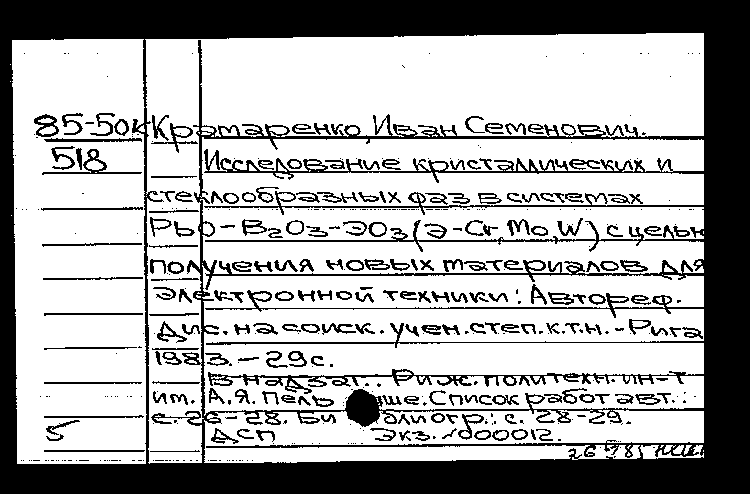 85-50к Краmаренко, Иван Семенович.
518 Исследование кристаллических и
стеклообразных фаз в системах
PbO-B₂O₃-ЭO₃ (Э-Cr, Mo, W) с целью
получения новых материалов для
электронной техники: Автореф.
дис. на соиск. учен. степ. к.т.н. - Рига
1983. - 29 с.
В надзаг.: Риж. политехн. ин-т
им. А.Я. Пельше. Список работ авт.:
с. 26-28. Библиогр.: с. 28-29.
5 ДСП Экз. №000012.
26 985